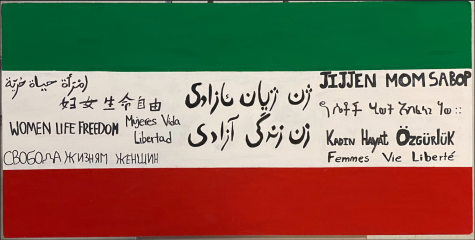 امرأة حياة حرية
妇女生命自由
WOMEN LIFE FREEDOM
Mujeres Vida
Libertad
СВОБОДА ЖИЗНЯМ ЖЕНЩИН
ژن ژیان ئازادی
زن زندگی آزادی
JIJJEN MOM SABOP
KADIN HAYAT ÖZGÜRLÜK
Femmes Vie Liberté